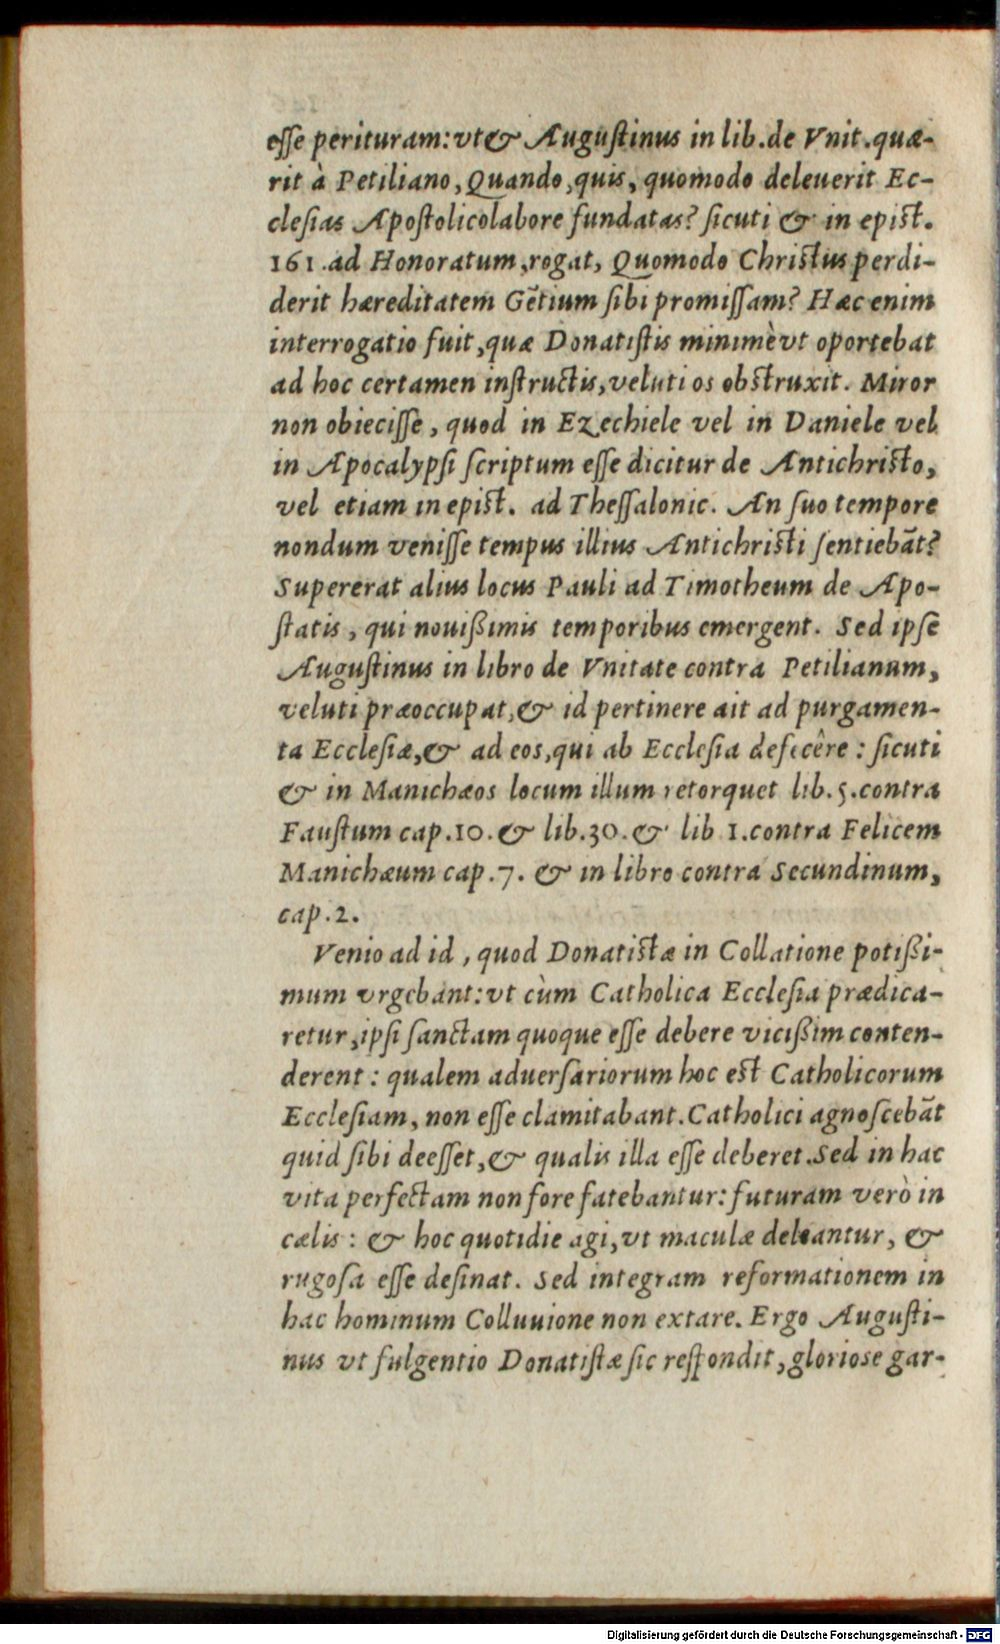 eſſe perituram: vt & Auguſtinus in lib. de Vnit. quæ-
rit à Petiliano, Quando, quis, quomodo deleuerit Ec-
cleſias Apoſtolico labore fundatas? ſicuti & in epiſt.
161. ad Honoratum, rogat, Quomodo Chriſtus perdi-
derit hæreditatem Gẽtium ſibi promiſſam? Hæc enim
interrogatio fuit, quæ Donatiſtis minimè vt oportebat
ad hoc certamen inſtructis, veluti os obſtruxit. Miror
non obieciſſe, quod in Ezechiele vel in Daniele vel
in Apocalypſi ſcriptum eſſe dicitur de Antichriſto,
vel etiam in epiſt. ad Theſſalonic. An ſuo tempore
nondum veniſſe tempus illius Antichriſti ſentiebãt?
Supererat alius locus Pauli ad Timotheum de Apo-
ſtatis, qui nouißimis temporibus emergent. Sed ipſe
Auguſtinus in libro de Vnitate contra Petilianum,
veluti præoccupat, & id pertinere ait ad purgamen-
ta Eccleſiæ, & ad eos, qui ab Eccleſia defecêre: ſicuti
& in Manichæos locum illum retorquet lib. 5. contra
Fauſtum cap. 10. & lib. 30. & lib 1. contra Felicem
Manichæum cap. 7. & in libro contra Secundinum,
cap. 2.
Venio ad id, quod Donatiſtæ in Collatione potißi-
mum vrgebant: vt cùm Catholica Eccleſia prædica-
retur, ipſi ſanctam quoque eſſe debere vicißim conten-
derent: qualem aduerſariorum hoc eſt Catholicorum
Eccleſiam, non eſſe clamitabant. Catholici agnoſcebãt
quid ſibi deeſſet, & qualis illa eſſe deberet. Sed in hac
vita perfectam non fore fatebantur: futuram verò in
cælis: & hoc quotidie agi, vt maculæ deleantur, &
rugoſa eſſe deſinat. Sed integram reformationem in
hac hominum Colluuione non extare. Ergo Auguſti-
nus vt fulgentio Donatiſtæ ſic reſpondit, glorioſe gar-
Digitalisierung gefördert durch die Deutsche Forschungsgemeinschaft - DFG